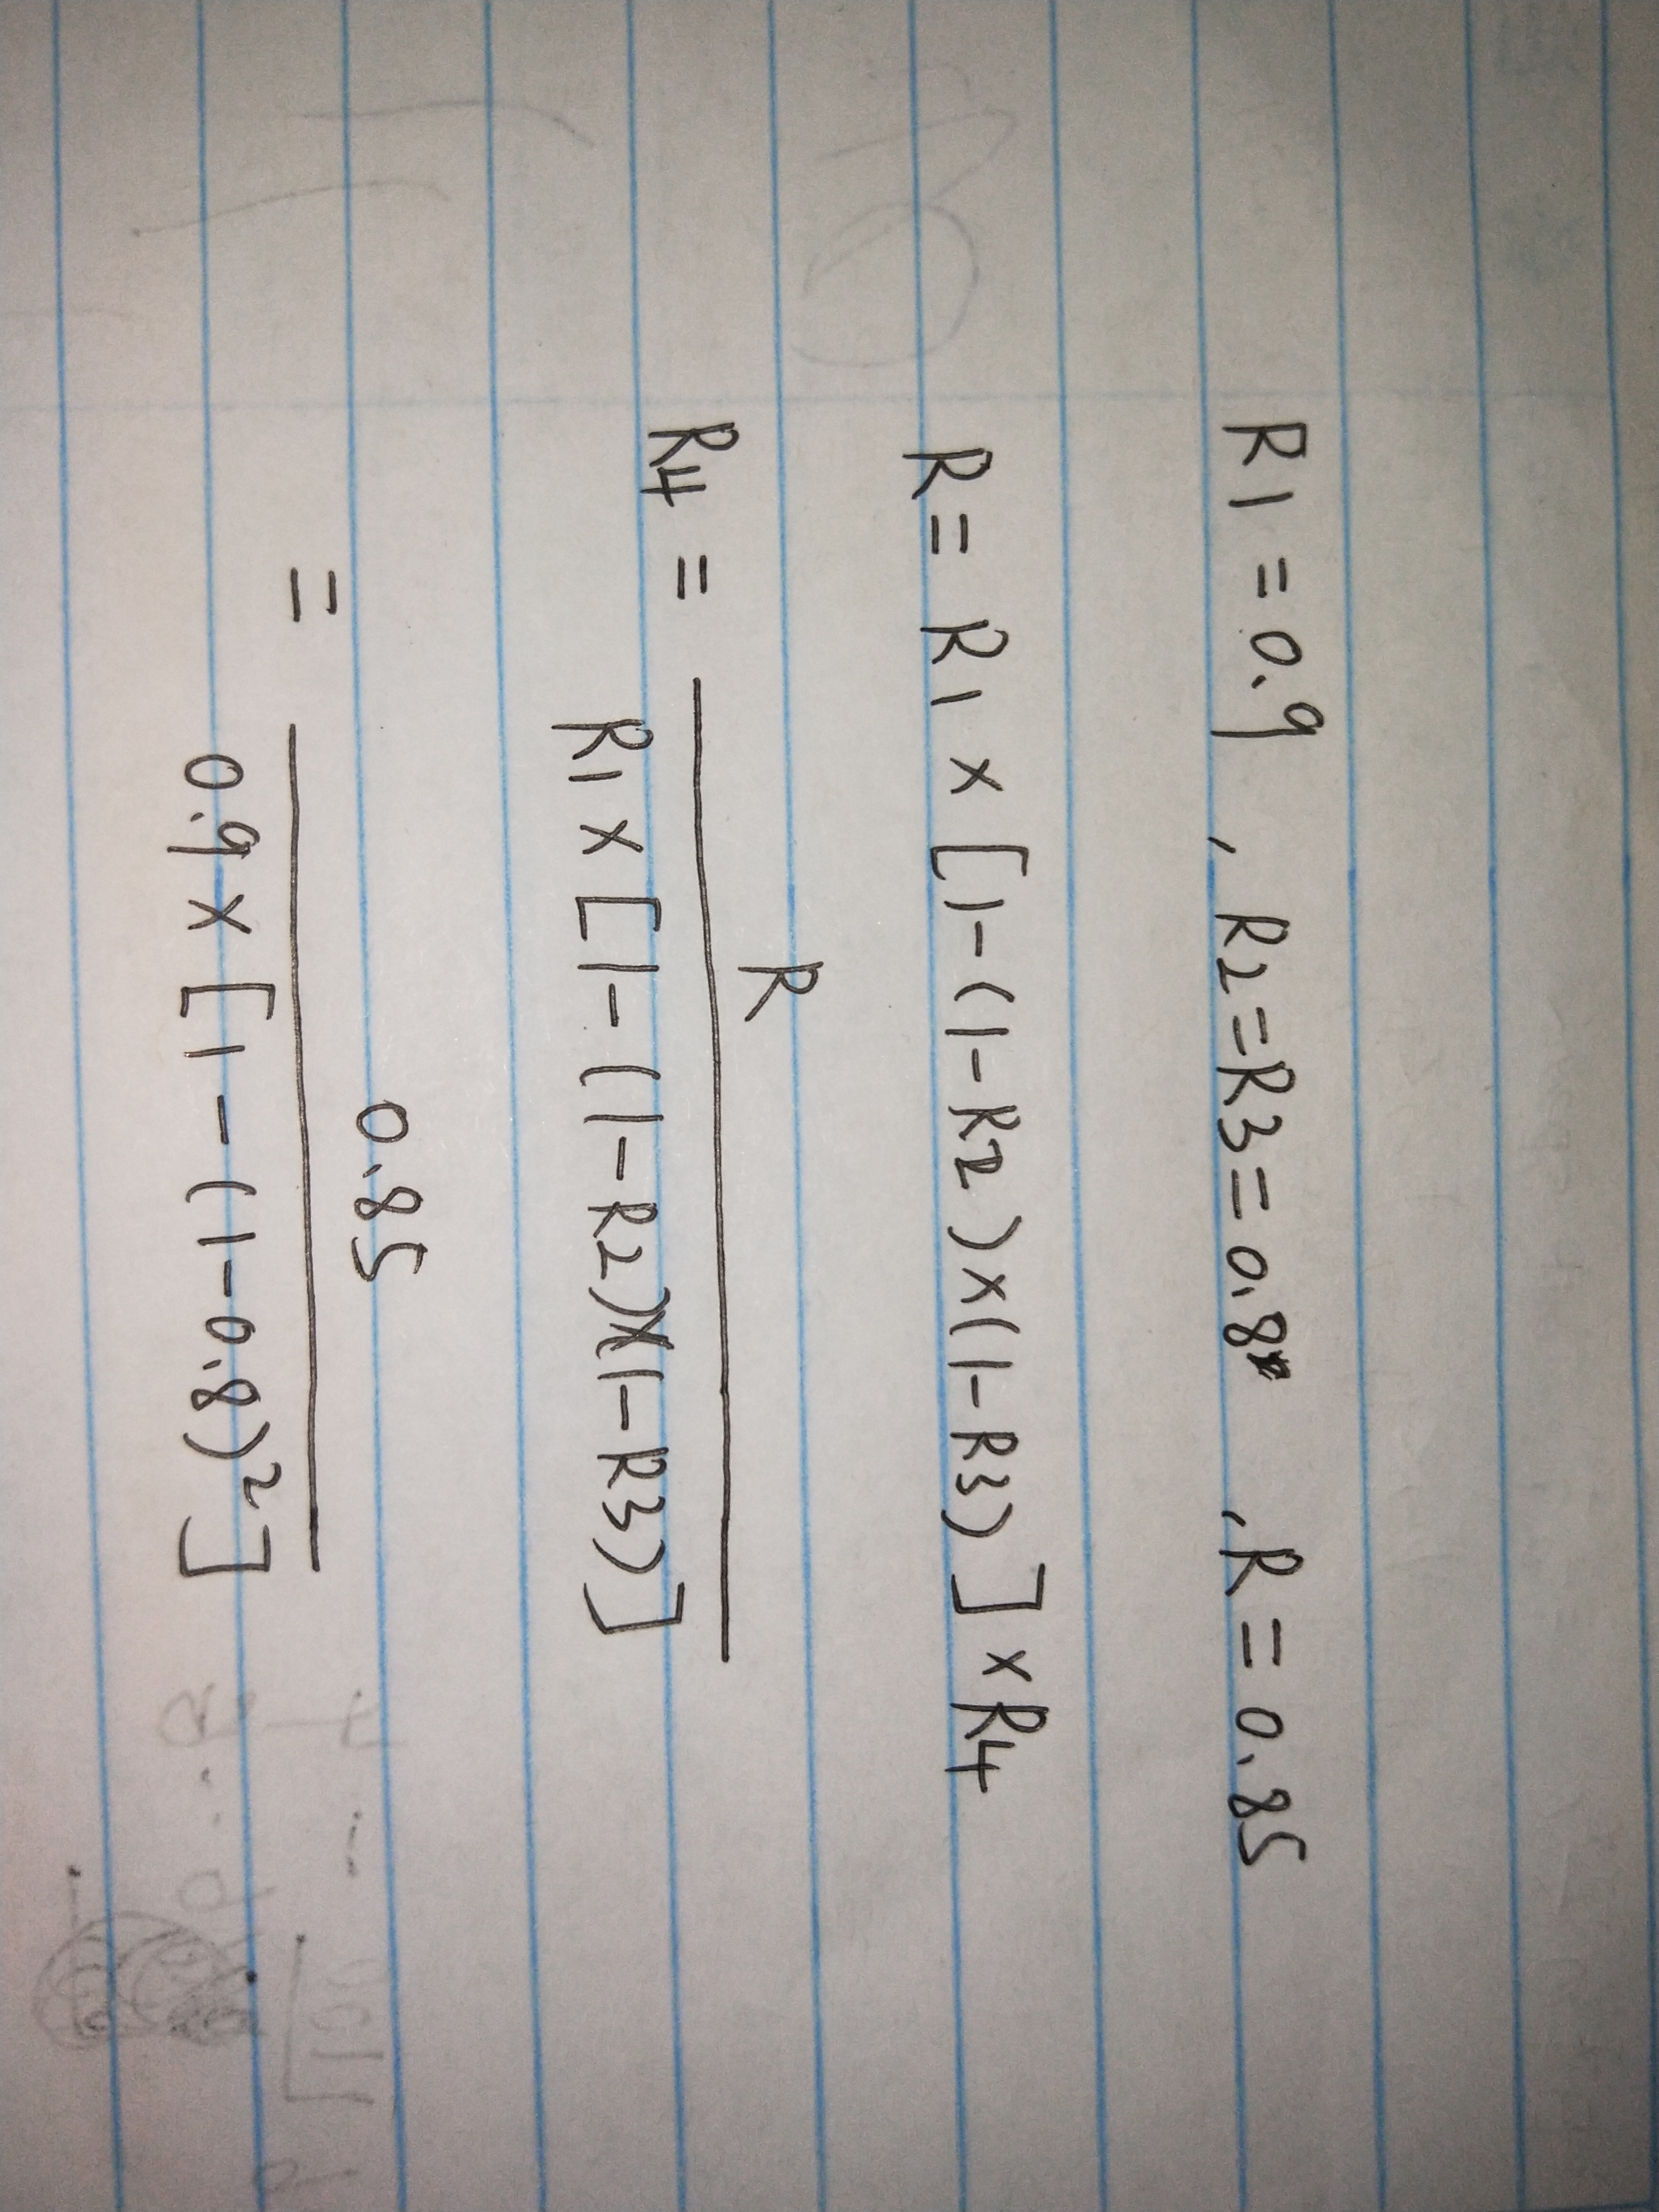 R1 = 0.9 , R2=R3=0.8 , R = 0.85
R = R1 × [1-(1-R2)×(1-R3)] × R4
R
R4 =
R1 × [1-(1-R2)×(1-R3)]
0.85
=
0.9 × [1-(1-0.8)²]